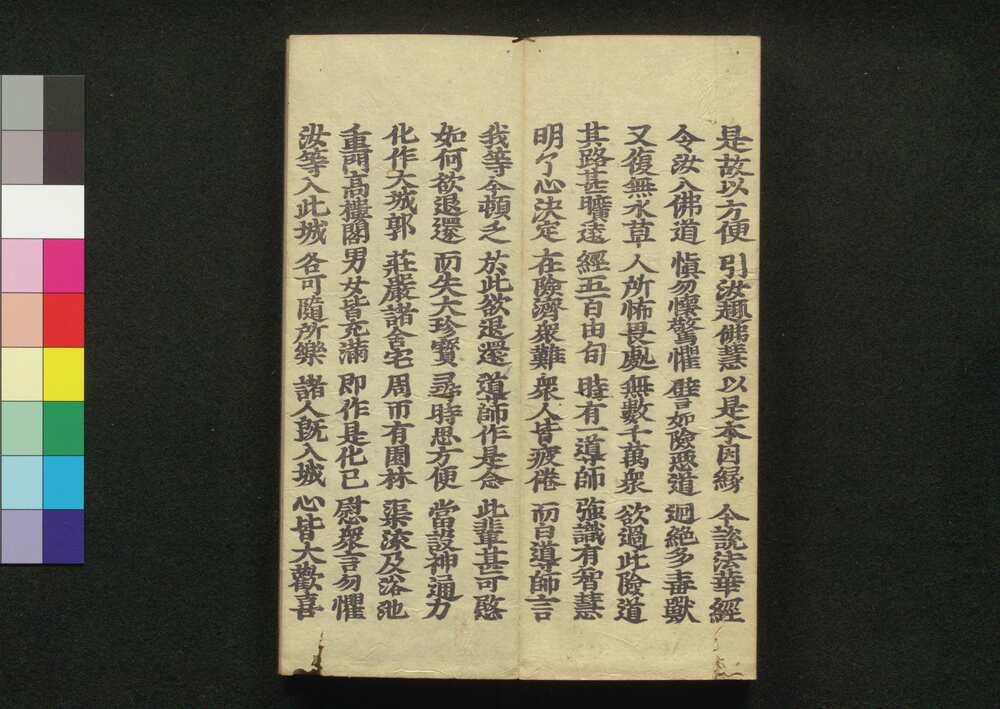 是故以方便 引汝趣佛慧 以是本因縁 今説法華經
令汝入佛道 愼勿懐驚懼 譬如險悪道 迥絶多毒獸
又復無水草 人所怖畏處 無數千萬衆 欲過此險道
其路甚曠遠 經五百由旬 時有一導師 強識有智慧
明了心決定 在險濟衆難 衆人皆疲倦 而白導師言
我等今頓乏 於此欲退還 導師作是念 此輩甚可愍
如何欲退還 而失大珍寳 尋時思方便 當設神通力
化作大城郭 莊嚴諸舍宅 周帀有園林 渠流及浴池
重門高樓閣 男女皆充滿 即作是化已 慰衆言勿懼
汝等入此城 各可隨所樂 諸人既入城 心皆大歡喜